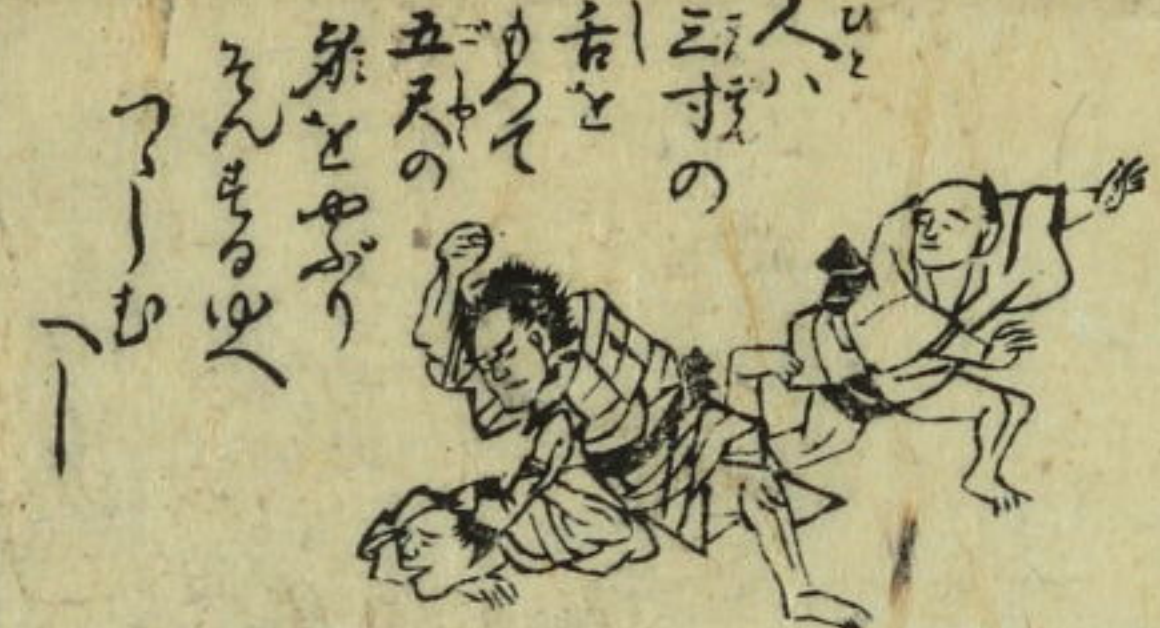 人ハ
三寸の
舌を
もつて
五尺の
身をやぶり
そんするゆへ
つゝしむ
へし